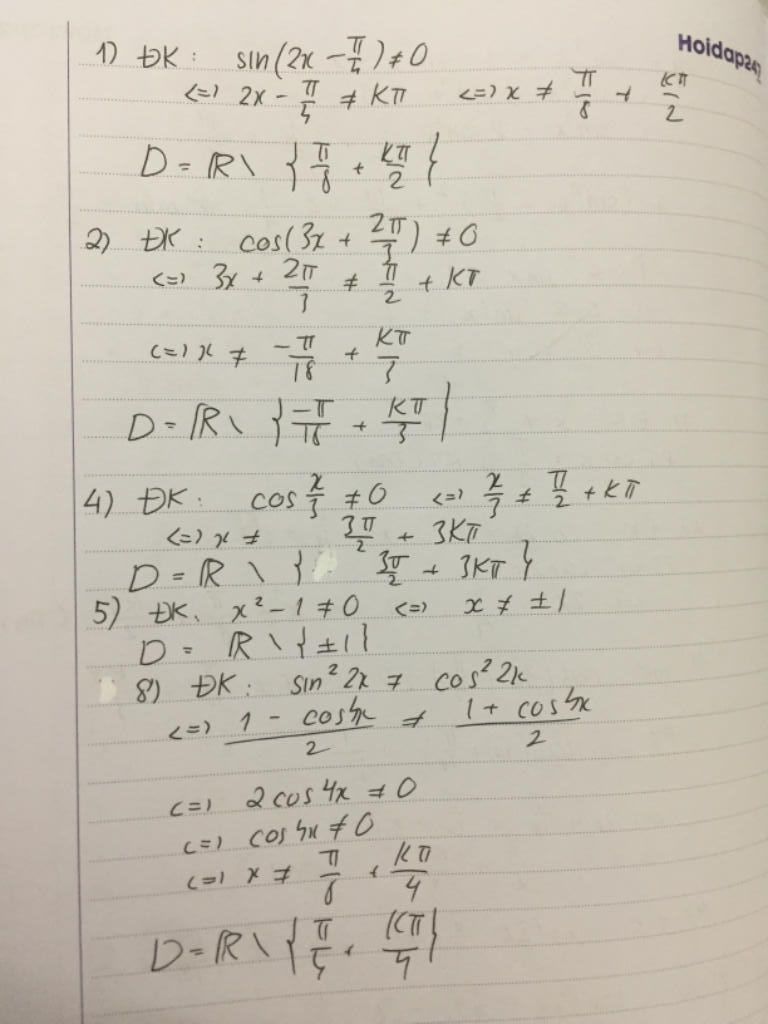 Hoidap247
1) ĐK: sin(2x - π/4) ≠ 0
<=> 2x - π/4 ≠ kπ <=> x ≠ π/8 + kπ/2
D = ℝ \ {π/8 + kπ/2}
2) ĐK: cos(3x + 2π/3) ≠ 0
<=> 3x + 2π/3 ≠ π/2 + kπ
<=> x ≠ -π/18 + kπ/3
D = ℝ \ {-π/18 + kπ/3}
4) ĐK: cos x/3 ≠ 0 <=> x/3 ≠ π/2 + kπ
<=> x ≠ 3π/2 + 3kπ
D = ℝ \ {3π/2 + 3kπ}
5) ĐK: x² - 1 ≠ 0 <=> x ≠ ±1
D = ℝ \ {±1}
8) ĐK: sin² 2x ≠ cos² 2x
<=> (1 - cos4x)/2 ≠ (1 + cos4x)/2
<=> 2cos4x ≠ 0
<=> cos4x ≠ 0
<=> x ≠ π/8 + kπ/4
D = ℝ \ {π/4 + kπ/4}